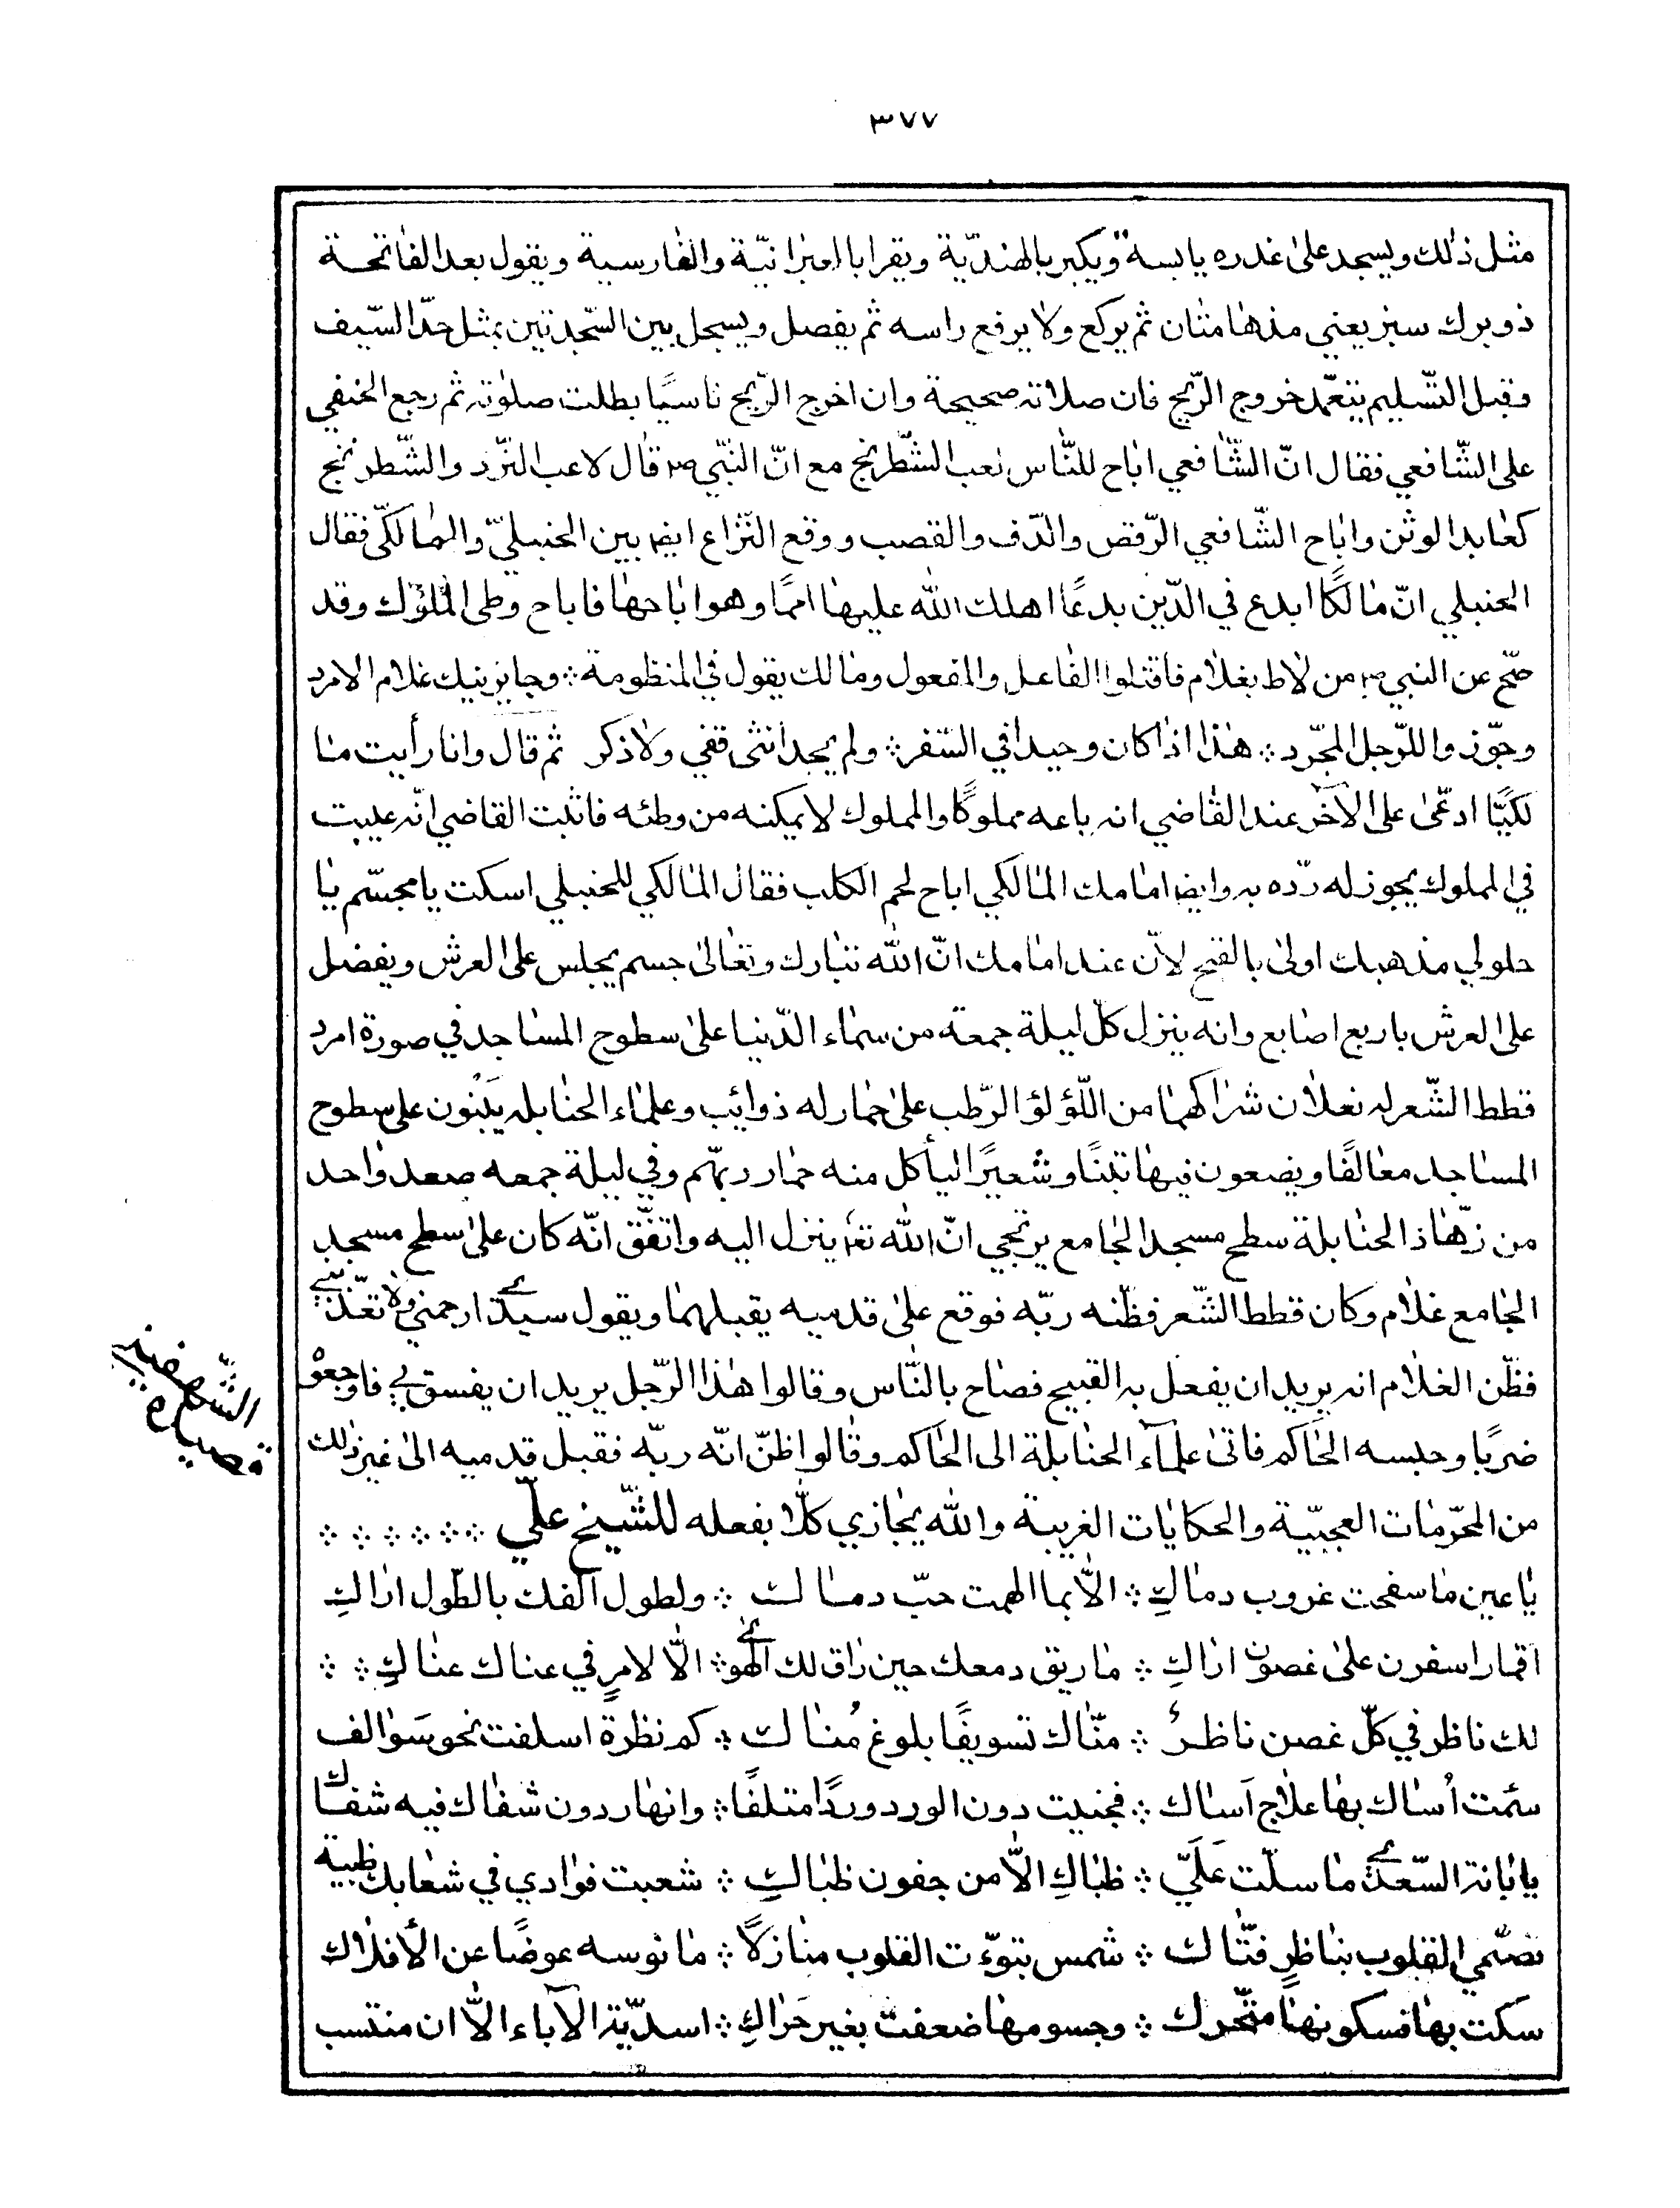 ٣٧٧
مثل ذلك ويسجد على غدره يابسة ويكبر بالهنديّة ويقرا بالعبرانيّة والفارسية ويقول بعد الفاتحة
دو برك سبز يعني مدهامتان ثم يركع ولا يرفع راسه ثم يفصل ويسجل بين السّجدتين بمثل حدّ السّيف
وقبل التّسليم يتعمّد خروج الرّيح فان صلاته صحيحة وان اخرج الرّيح ناسيًا بطلت صلوته ثم رجع الحنفي
على الشّافعي فقال انّ الشّافعي اباح للنّاس لعب الشّطرنج مع انّ النّبي ص قال لاعب النّرد والشّطرنج
كعابد الوثن واباح الشّافعي الرّقص والدّف والقصب ووقع النّزاع ايضا بين الحنبليّ والمالكّي فقال
الحنبلي انّ مالكًا ابدع في الدّين بدعًا اهلك الله عليها اممًا وهو اباحها فاباح وطى المملوك وقد
صّح عن النبي ص من لاط بغلام فاقتلوا الفاعل والمفعول ومالك يقول في المنظومة ❊ وجايز نيك غلام الامرد
وجوّزوا للرّجل المجّرد ❊ هذا اذا كان وحيدا في السّفر ❊ ولم يجد انثى تفي ولا ذكر ثم قال وانا رأيت ما
لكيًّا ادعّى على الآخر عند القاضي انه باعه مملوكًا والمملوك لا يمكنه من وطئه فاثبت القاضي انّه عيب
في المملوك يجوز له ردّه به وايضا امامك المالكي اباح لحم الكلب فقال المالكي للحنبلي اسكت يا مجسّم يا
حلولي مذهبك اولى بالقبح لانّ عند امامك انّ الله تبارك وتعالى جسم يجلس على العرش ويفضل
على العرش باربع اصابع وانه ينزل كلّ ليلة جمعة من سماء الدّنيا على سطوح المساجد في صورة امرد
قطط الشّعر له نعلان شراكهما من اللّؤلؤ الرّطب على حمار له ذوائب وعلماء الحنابله يَبْنون على سطوح
المساجد معالفًا ويضعون فيها تبنًا وشعيرًا ليأكل منه حمار ربهّم وفي ليلة جمعه صعد واحد
من زهّاد الحنابلة سطح مسجد الجامع يرتجي انّ الله تعا ينزل اليه واتفّق انّه كان على سطح مسجد
الجامع غلام وكان قطط الشّعر فظّنه ربّه فوقع على قدميه يقبلهما ويقول سيدي ارحمني ولا تعذّبني
فظّن الغلام انه يريد ان يفعل به القبيح فصاح بالنّاس وقالوا هذا الرّجل يريد ان يفسق بي فاوجعوه
ضربًا وحبسه الحاكم فاتى علمآء الحنابلة الى الحاكم وقالوا ظنّ انّه ربّه فقبل قدميه الى غير ذلك
من المحرّمات العجيبّة والحكايات الغريبة والله يجازي كلّا بفعله للشّيخ علّي ❊ ❊ ❊ ❊ ❊ ❊
الشهفينيه
قصيدة
يا عين ما سفحت غروب دماكِ ❊ الاّ بما الهمت حبّ دماك ❊ ولطول الفك بالطّلول اراكِ
اقمارا سفرن على غصون اراكِ ❊ ما ريق دمعك حين راق لك الهوى ❊ الّا لامرٍ في عناك عناكِ ❊ ❊
لك ناظر في كلّ غصن ناظرٌ ❊ منّاك تسويفًا بلوغ مُناك ❊ كم نظرة اسلفت نحو سَوالف
سئمت اُساك بها علاج آساك ❊ فجنيت دون الورد وردًا متلفًا ❊ وانهار دون شفاك فيه شفاك
يا بانة السّعدي ما سلّت عَلَيّ ❊ ظباكِ الاّ من جفون ظباكِ ❊ شعبت فوادي في شعابك ظبية
تصّمي القلوب بناظرٍ فتّاك ❊ شمس تبوّءت القلوب منازلًا ❊ مانوسه عوضًا عن الأفلاك
سكت بها فسكونها متّحرك ❊ وجسومها ضعفت بغير حَراكِ ❊ اسديّة الآباء الاّ ان منتسب